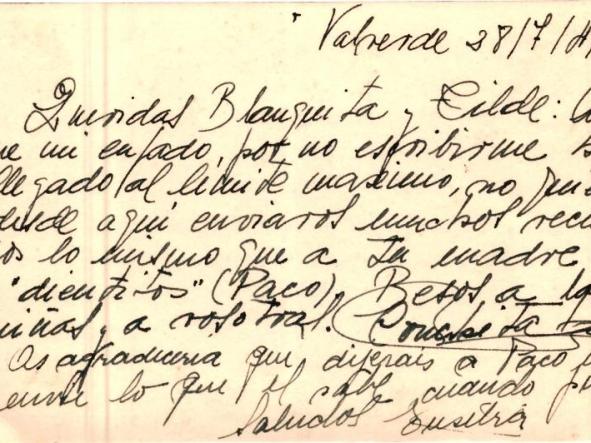 Valverde 28/7/4
Queridas Blanquita y Tilde:
ue mi enfado, por no escribirme
llegado al limite maximo, no
desde aqui enviaros muchos recu
os lo mismo que a tu madre
"dientitos" (Paco). Besos a
niñas y a vosotras. Conchita
Os agradeceria que dijerais a Paco
envie lo que el sabe cuando
Saludos